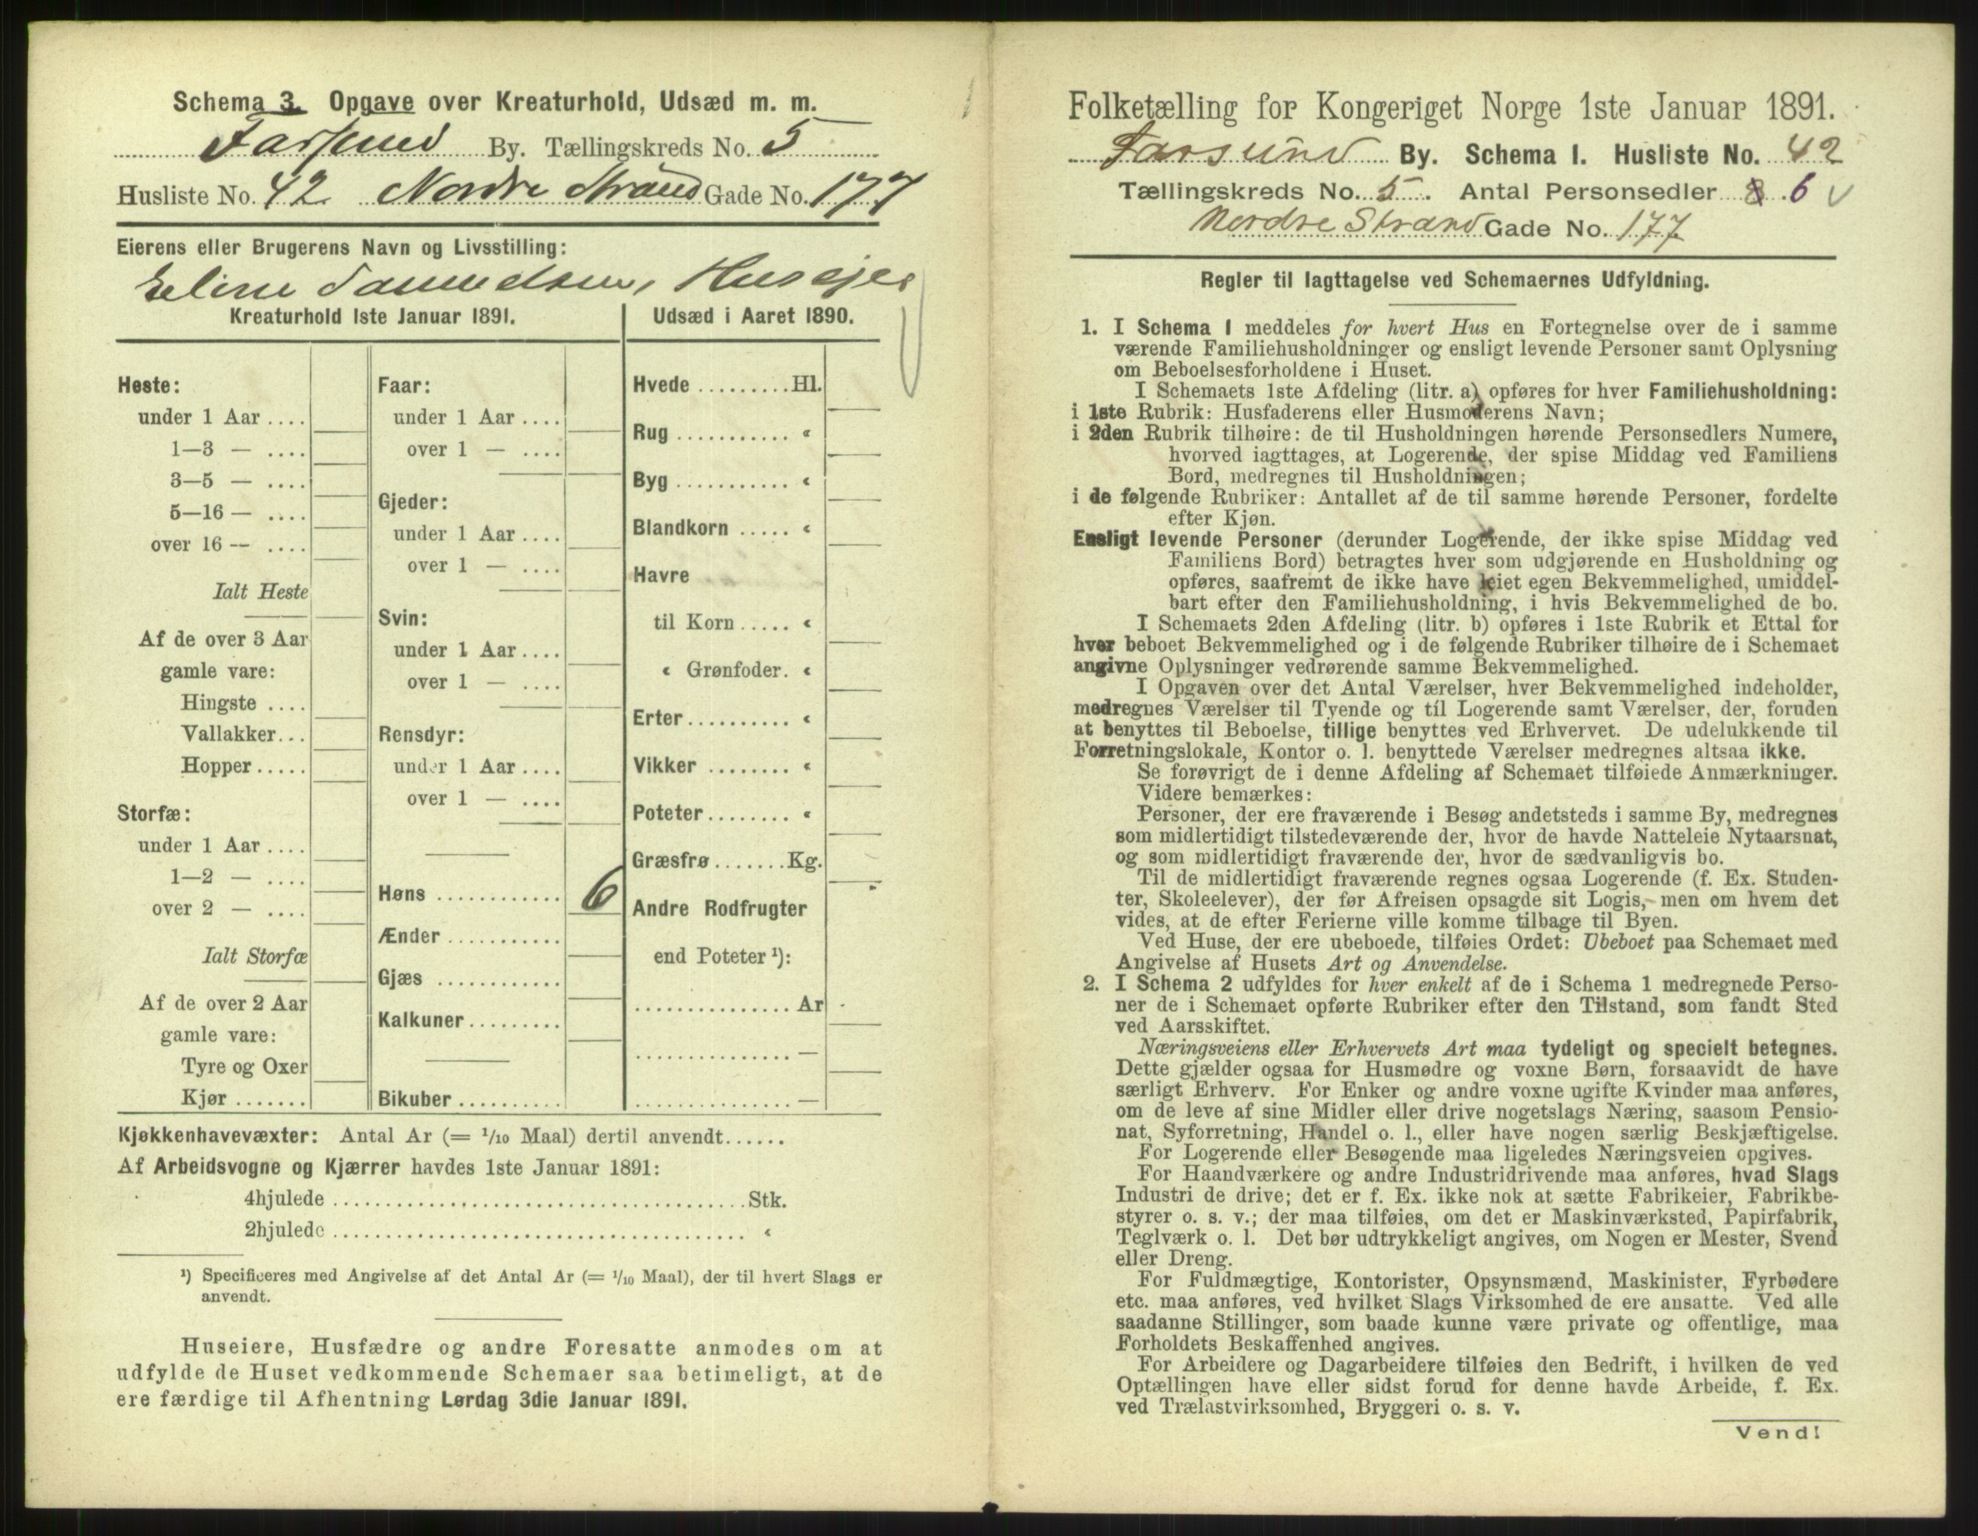 Schema 3. Opgave over Kreaturhold, Udsæd m. m.
Farsund By. Tællingskreds No. 5
Husliste No. 42 Nordre Strand Gade No. 177
Eierens eller Brugerens Navn og Livsstilling:
Eline Samuelsen, Huseier
Kreaturhold 1ste Januar 1891.
Heste:
under 1 Aar ....
1—3 — ....
3—5 — ....
5—16 — ....
over 16 — ....
Ialt Heste
Af de over 3 Aar
gamle vare:
Hingste ....
Vallakker...
Hopper.....
Storfæ:
under 1 Aar ....
1—2 — ....
over 2 — ....
Ialt Storfæ
Af de over 2 Aar
gamle vare:
Tyre og Oxer
Kjør .......
Faar:
under 1 Aar ....
over 1 — ....
Gjeder:
under 1 Aar ....
over 1 — ....
Svin:
under 1 Aar ....
over 1 — ....
Rensdyr:
under 1 Aar ....
over 1 — ....
Høns ............ 6
Ænder ...........
Gjæs ............
Kalkuner.........
Bikuber ..........
Udsæd i Aaret 1890.
Hvede .........Hl.
Rug ........... «
Byg ........... «
Blandkorn ..... «
Havre
til Korn ..... «
« Grønfoder. «
Erter.......... «
Vikker ........ «
Poteter........ «
Græsfrø .......Kg.
Andre Rodfrugter
end Poteter ¹):
............... Ar
............... —
............... —
Kjøkkenhavevæxter: Antal Ar (= 1/10 Maal) dertil anvendt......
Af Arbeidsvogne og Kjærrer havdes 1ste Januar 1891:
4hjulede ..................................... Stk.
2hjulede ..................................... «
¹) Specificeres med Angivelse af det Antal Ar (= 1/10 Maal), der til hvert Slags er
anvendt.
Huseiere, Husfædre og andre Foresatte anmodes om at
udfylde de Huset vedkommende Schemaer saa betimeligt, at de
ere færdige til Afhentning Lørdag 3die Januar 1891.
Folketælling for Kongeriget Norge 1ste Januar 1891.
Farsund By. Schema I. Husliste No. 42
Tællingskreds No. 5. Antal Personsedler 8 6
Nordre Strand Gade No. 177
Regler til Iagttagelse ved Schemaernes Udfyldning.
1. I Schema 1 meddeles for hvert Hus en Fortegnelse over de i samme
værende Familiehusholdninger og ensligt levende Personer samt Oplysning
om Beboelsesforholdene i Huset.
I Schemaets 1ste Afdeling (litr. a) opføres for hver Familiehusholdning:
i 1ste Rubrik: Husfaderens eller Husmoderens Navn;
i 2den Rubrik tilhøire: de til Husholdningen hørende Personsedlers Numere,
hvorved iagttages, at Logerende, der spise Middag ved Familiens
Bord, medregnes til Husholdningen;
i de følgende Rubriker: Antallet af de til samme hørende Personer, fordelte
efter Kjøn.
Ensligt levende Personer (derunder Logerende, der ikke spise Middag ved
Familiens Bord) betragtes hver som udgjørende en Husholdning og
opføres, saafremt de ikke have leiet egen Bekvemmelighed, umiddel-
bart efter den Familiehusholdning, i hvis Bekvemmelighed de bo.
I Schemaets 2den Afdeling (litr. b) opføres i 1ste Rubrik et Ettal for
hver beboet Bekvemmelighed og i de følgende Rubriker tilhøire de i Schemaet
angivne Oplysninger vedrørende samme Bekvemmelighed.
I Opgaven over det Antal Værelser, hver Bekvemmelighed indeholder,
medregnes Værelser til Tyende og til Logerende samt Værelser, der, foruden
at benyttes til Beboelse, tillige benyttes ved Erhvervet. De udelukkende til
Forretningslokale, Kontor o. l. benyttede Værelser medregnes altsaa ikke.
Se forøvrigt de i denne Afdeling af Schemaet tilføiede Anmærkninger.
Videre bemærkes:
Personer, der ere fraværende i Besøg andetsteds i samme By, medregnes
som midlertidigt tilstedeværende der, hvor de havde Natteleie Nytaarsnat,
og som midlertidigt fraværende der, hvor de sædvanligvis bo.
Til de midlertidigt fraværende regnes ogsaa Logerende (f. Ex. Studen-
ter, Skoleelever), der før Afreisen opsagde sit Logis, men om hvem det
vides, at de efter Ferierne ville komme tilbage til Byen.
Ved Huse, der ere ubeboede, tilføies Ordet: Ubeboet paa Schemaet med
Angivelse af Husets Art og Anvendelse.
2. I Schema 2 udfyldes for hver enkelt af de i Schema 1 medregnede Perso-
ner de i Schemaet opførte Rubriker efter den Tilstand, som fandt Sted
ved Aarsskiftet.
Næringsveiens eller Erhvervets Art maa tydeligt og specielt betegnes.
Dette gjælder ogsaa for Husmødre og voxne Børn, forsaavidt de have
særligt Erhverv. For Enker og andre voxne ugifte Kvinder maa anføres,
om de leve af sine Midler eller drive nogetslags Næring, saasom Pensio-
nat, Syforretning, Handel o. l., eller have nogen særlig Beskjæftigelse.
For Logerende eller Besøgende maa ligeledes Næringsveien opgives.
For Haandværkere og andre Industridrivende maa anføres, hvad Slags
Industri de drive; det er f. Ex. ikke nok at sætte Fabrikeier, Fabrikbe-
styrer o. s. v.; der maa tilføies, om det er Maskinværksted, Papirfabrik,
Teglværk o. l. Det bør udtrykkeligt angives, om Nogen er Mester, Svend
eller Dreng.
For Fuldmægtige, Kontorister, Opsynsmænd, Maskinister, Fyrbødere
etc. maa anføres, ved hvilket Slags Virksomhed de ere ansatte. Ved alle
saadanne Stillinger, som baade kunne være private og offentlige, maa
Forholdets Beskaffenhed angives.
For Arbeidere og Dagarbeidere tilføies den Bedrift, i hvilken de ved
Optællingen have eller sidst forud for denne havde Arbeide, f. Ex.
ved Trælastvirksomhed, Bryggeri o. s. v.
Vend!